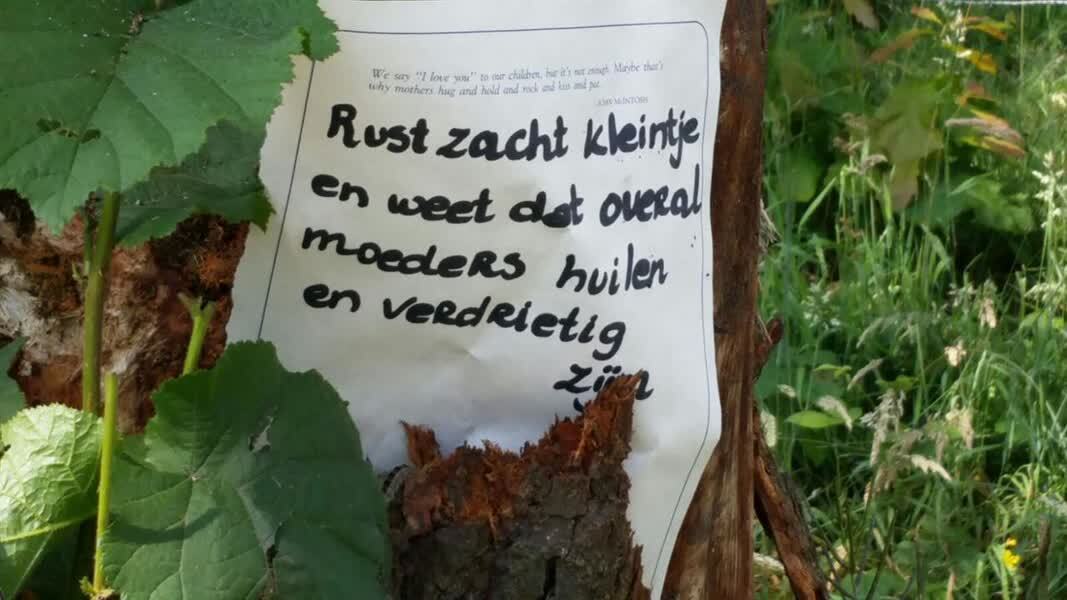 We say "I love you" to our children, but it's not enough. Maybe that's
why mothers hug and hold and rock and kiss and pat.
JOAN McINTOSH
Rust zacht kleintje
en weet dat overal
moeders huilen
en verdrietig
zijn